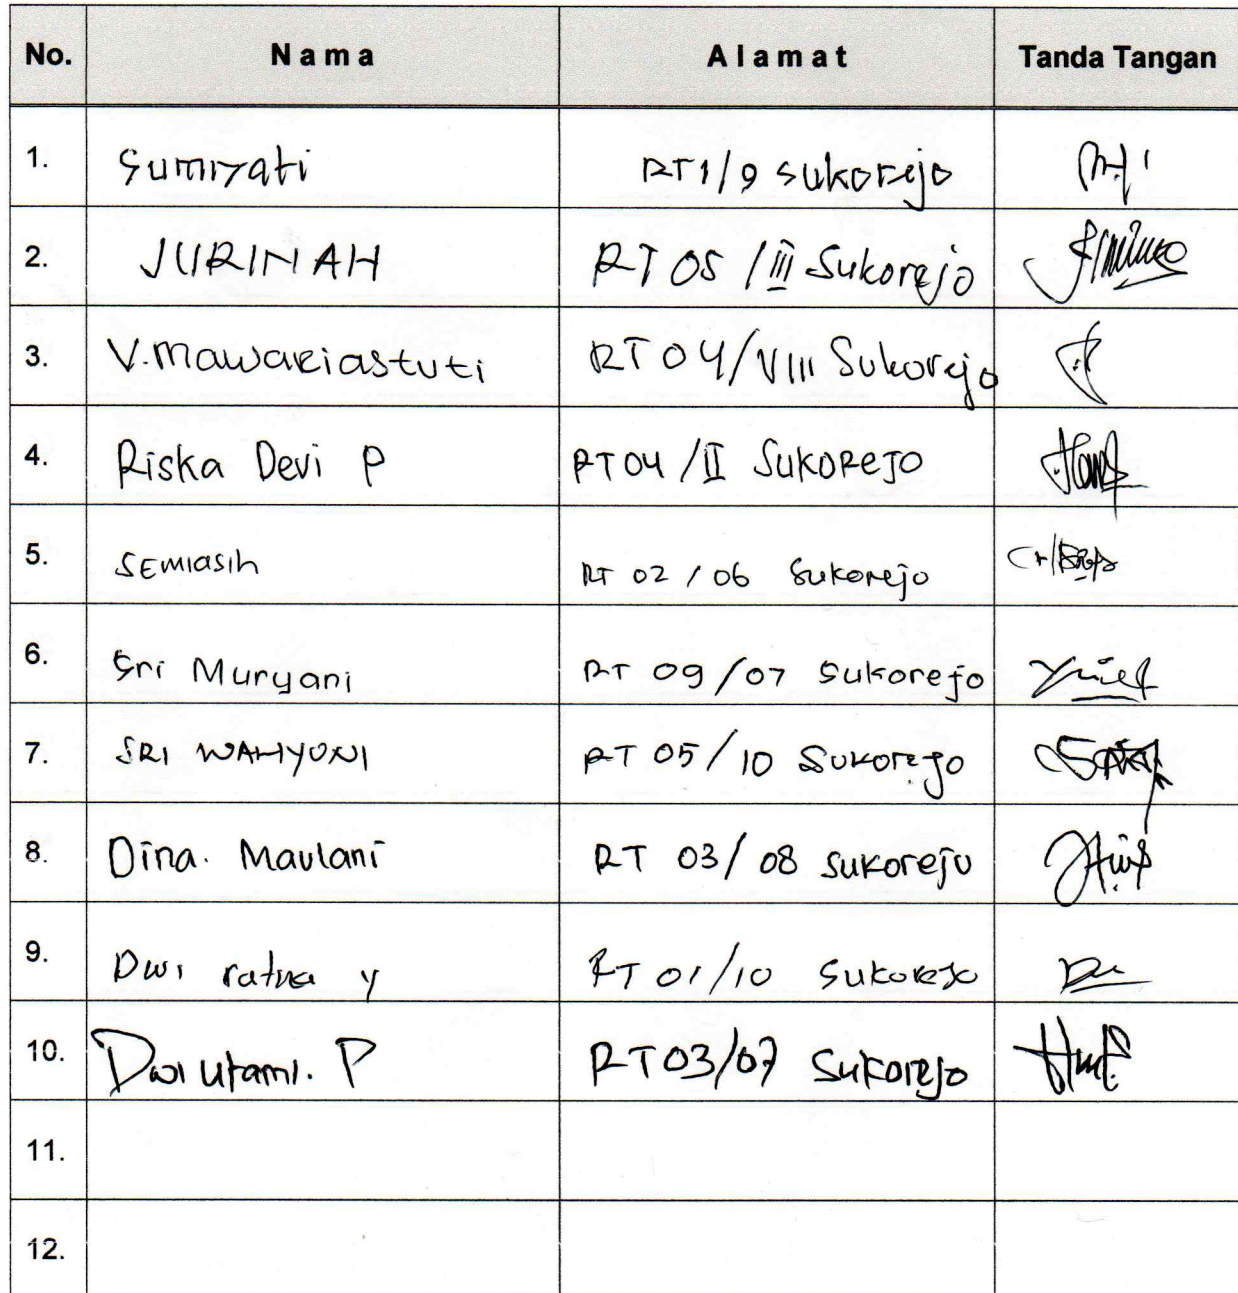 No. Nama Alamat Tanda Tangan
1. Sumiyati RT 1/9 Sukorejo
2. JURINAH RT 05 / III Sukorejo
3. V. Mawariastuti RT 04/VIII Sukorejo
4. Riska Devi P RT 04 / II SUKOREJO
5. SEMIASIH RT 02 / 06 Sukorejo
6. Sri Muryani RT 09/07 Sukorejo
7. SRI WAHYUNI RT 05/10 Sukorejo
8. Dina. Maulani RT 03/08 Sukorejo
9. Dwi ratna y RT 01/10 Sukorejo
10. Dwi utami. P RT 03/07 Sukorejo
11.
12.